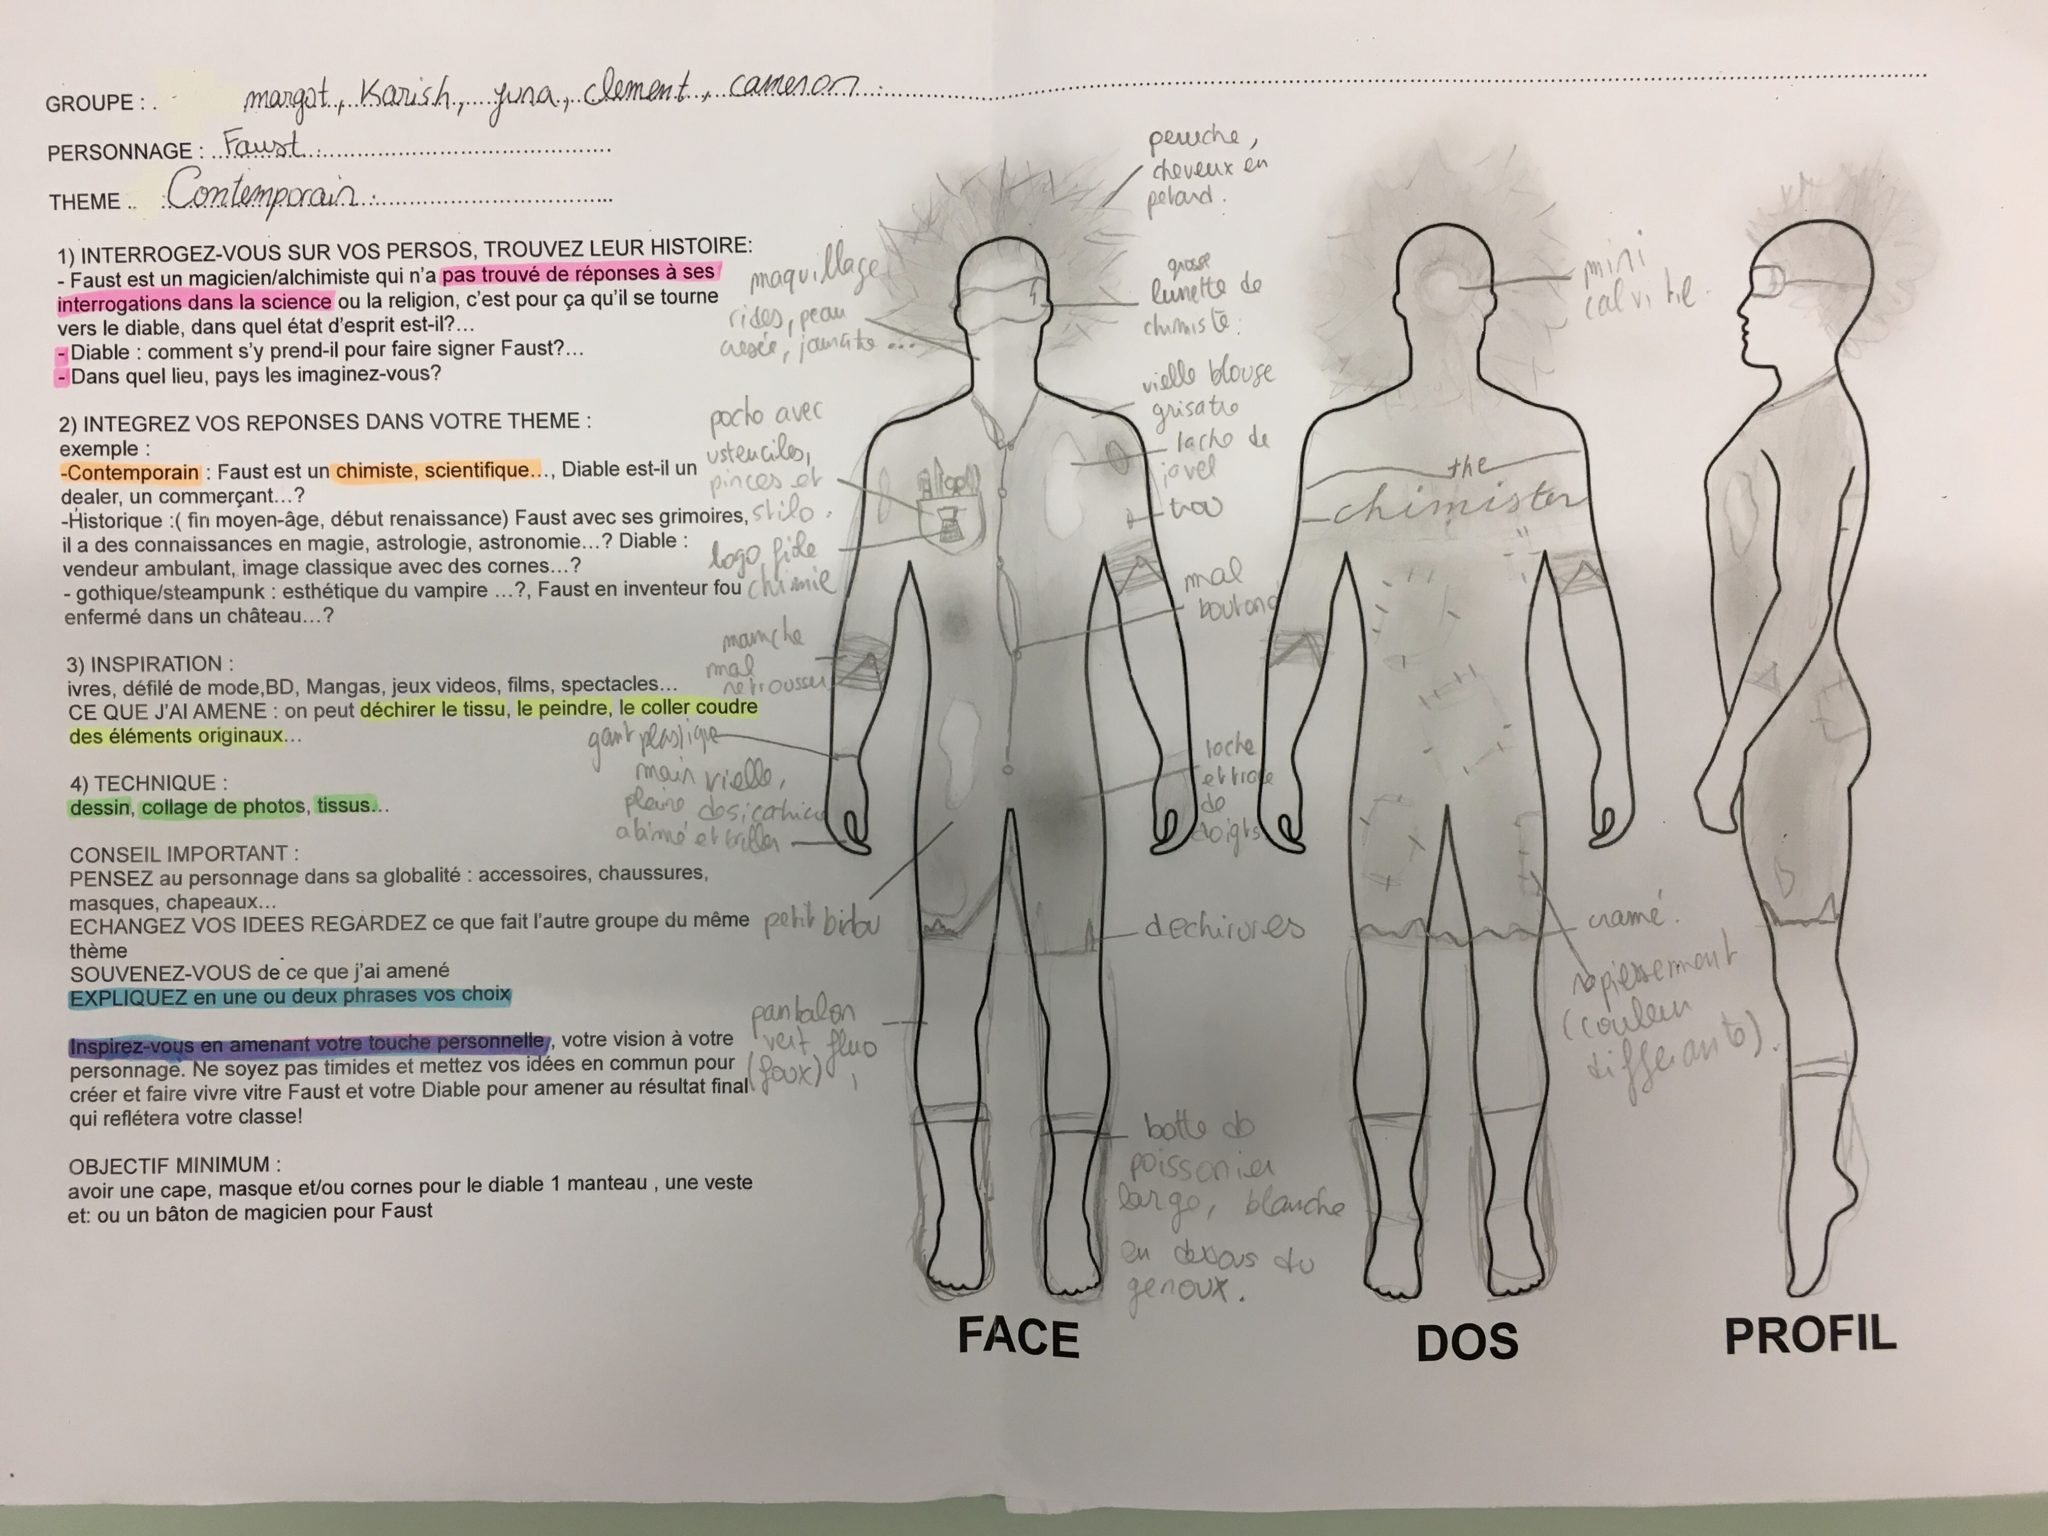 GROUPE : . margot, Karish, yuna, clement, cameron
PERSONNAGE : Faust
THEME .. Contemporain
1) INTERROGEZ-VOUS SUR VOS PERSOS, TROUVEZ LEUR HISTOIRE:
- Faust est un magicien/alchimiste qui n'a pas trouvé de réponses à ses
interrogations dans la science ou la religion, c'est pour ça qu'il se tourne
vers le diable, dans quel état d'esprit est-il?...
- Diable : comment s'y prend-il pour faire signer Faust?...
- Dans quel lieu, pays les imaginez-vous?
2) INTEGREZ VOS REPONSES DANS VOTRE THEME :
exemple :
-Contemporain : Faust est un chimiste, scientifique..., Diable est-il un
dealer, un commerçant...?
-Historique :( fin moyen-âge, début renaissance) Faust avec ses grimoires,
il a des connaissances en magie, astrologie, astronomie...? Diable :
vendeur ambulant, image classique avec des cornes...?
- gothique/steampunk : esthétique du vampire ...?, Faust en inventeur fou
enfermé dans un château...?
3) INSPIRATION :
ivres, défilé de mode,BD, Mangas, jeux videos, films, spectacles...
CE QUE J'AI AMENE : on peut déchirer le tissu, le peindre, le coller coudre
des éléments originaux...
4) TECHNIQUE :
dessin, collage de photos, tissus...
CONSEIL IMPORTANT :
PENSEZ au personnage dans sa globalité : accessoires, chaussures,
masques, chapeaux...
ECHANGEZ VOS IDEES REGARDEZ ce que fait l'autre groupe du même
thème
SOUVENEZ-VOUS de ce que j'ai amené
EXPLIQUEZ en une ou deux phrases vos choix
Inspirez-vous en amenant votre touche personnelle, votre vision à votre
personnage. Ne soyez pas timides et mettez vos idées en commun pour
créer et faire vivre vitre Faust et votre Diable pour amener au résultat final
qui reflétera votre classe!
OBJECTIF MINIMUM :
avoir une cape, masque et/ou cornes pour le diable 1 manteau , une veste
et: ou un bâton de magicien pour Faust
maquillage
rides, peau
poche avec
ustenciles,
pinces et
stilo.
logo fiole
chimie
manche
mal
retroussé
gant plastique
main vielle,
pleine
abimé et
petit bidou
pantalon
vert fluo
perruche,
cheveux en
petard.
grosse
lunette de
chimiste.
vielle blouse
grisatre
tache de
javel
trou
mal
boutoné
tache
et trace
de
doigts
dechirures
botte de
poissonier
large, blanche
en dessous du
genoux.
mini
calvitie.
the
chimister
cramé.
rapiessement
(couleur
differante).
FACE
DOS
PROFIL